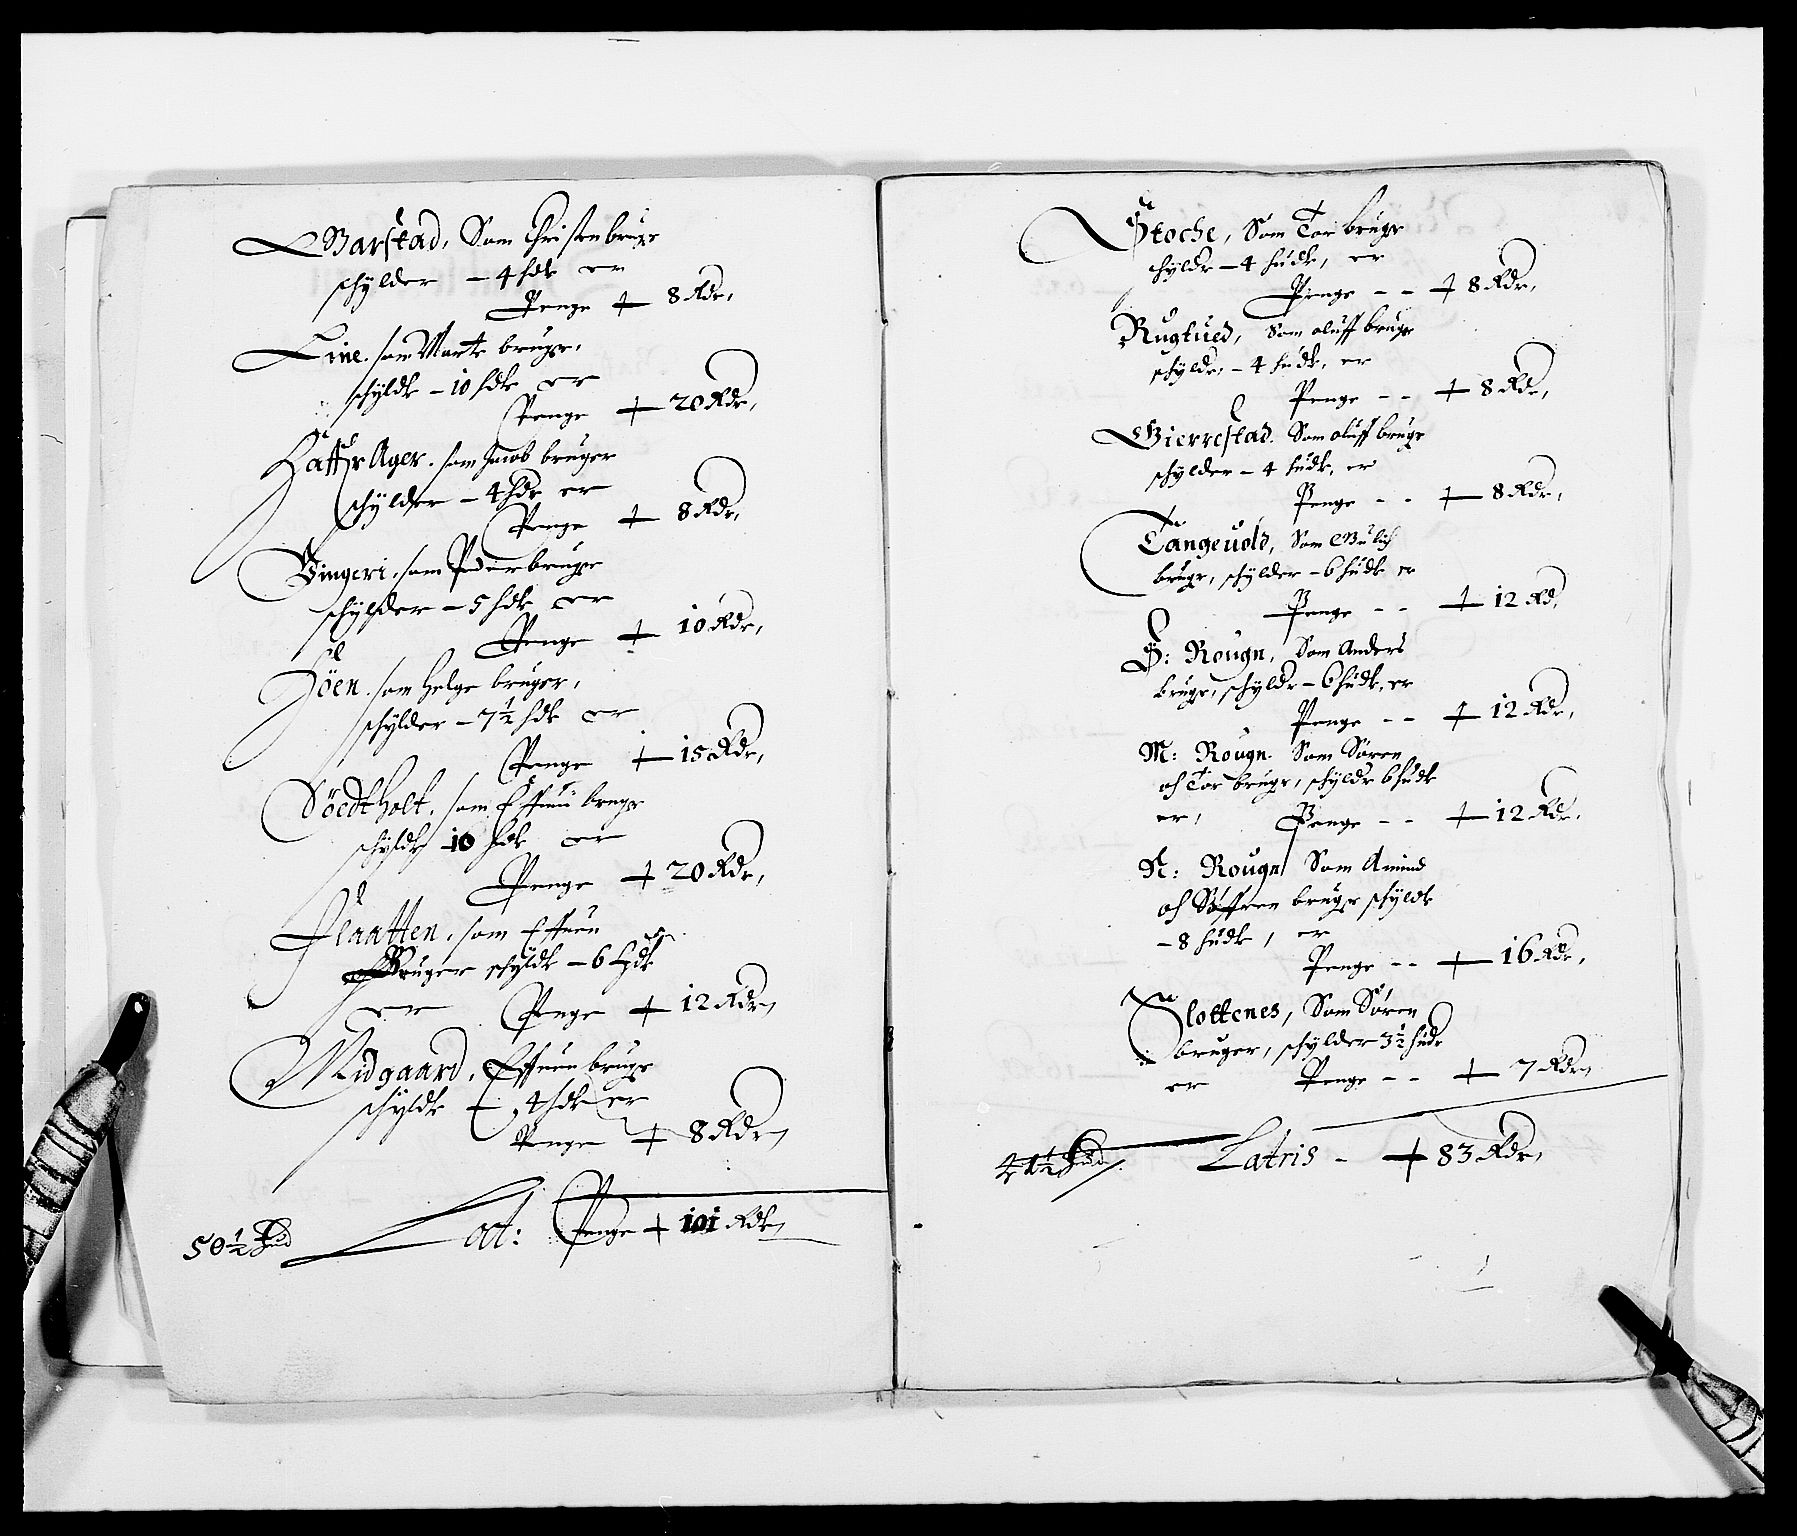 Barstad, Som Christen bruger
schylder – 4 hdr er
Penge + 8 Rdr,
Line. som Marte bruger,
schylder – 10 hdr er
Penge + 20 Rdr,
Haffr Ager. som Jacob bruger
schylder – 4 hdr er
Penge + 8 Rdr,
Vingeri. som Peder bruger
schylder – 5 hdr er
Penge + 10 Rdr,
Höen. som Helge bruger,
schylder – 7½ hdr er
Penge + 15 Rdr,
Södtholt. som Effuen bruger
schylder 10 hdr er
Penge + 20 Rdr,
Flaatten. som Effuen
Bruger schylder – 6 hdr
er Penge + 12 Rdr,
Midgaard. Effuen bruger
schylder – 4 hdr er
Penge + 8 Rdr,
50½ hud Lat: Penge + 101 Rdr,
Stoche, Som Tor bruger
schylder – 4 hudr, er
Penge – – + 8 Rdr,
Rugtued, Som oluff bruger
schylder, – 4 hudr, er
Penge – – + 8 Rdr,
Bierrestad. Som oluff bruger
schylder – 4 hudr, er
Penge – – + 8 Rdr,
Tangeuold, Som
bruger, schylder – 6 hudr er
Penge – – + 12 Rd,
S: Rougn, Som Anders
bruger, schylder – 6 hudr, er
Penge – – + 12 Rdr,
M: Rougn. Som Sören
och Tor bruger, schylder 6 hudr
er, Penge – – + 12 Rdr,
N: Rougn Som Amund
och Söffren bruger schylder
– 8 hudr, er
Penge – – + 16 Rdr,
Slottenes, Som Sören
bruger, schylder 3½ hudr
er Penge – – + 7 Rdr,
41½ hud Latris – + 83 Rdr,